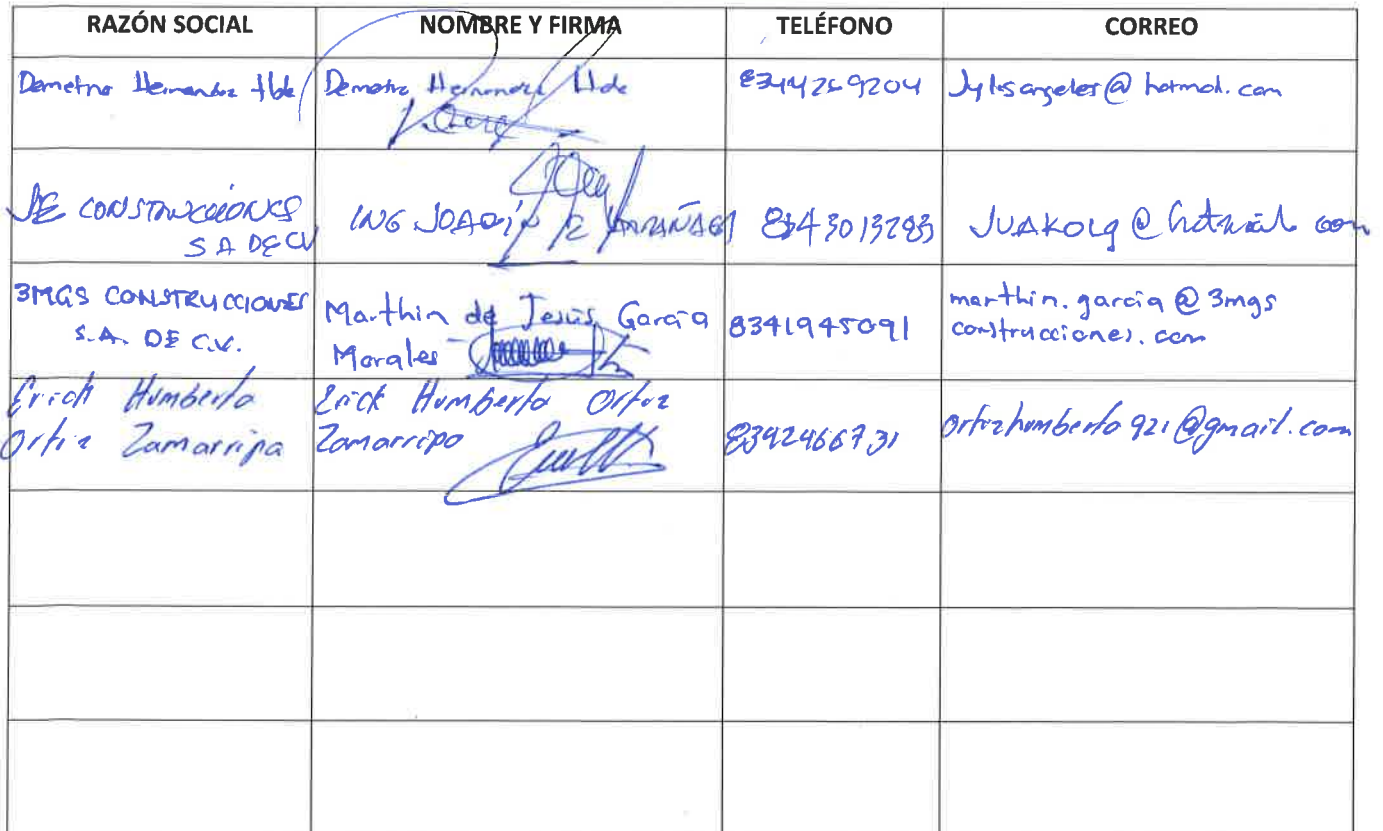 RAZÓN SOCIAL NOMBRE Y FIRMA TELÉFONO CORREO
Demetrio Hernandez Hdz Demetrio Hernandez Hdz 8344269204 @hotmail.com
CONSTRUCCIONES
S A DE CV
ING JOAQÍN 8343013283 JUAKOLg@hotmail com
3MGS CONSTRUCCIONES
S.A. DE C.V.
Marthin de Jesús García
Morales
8341945091
marthin.garcia@3mgs
construcciones.com
Erick Humberto
Ortiz Zamarripa
Erick Humberto Ortiz
Zamarripa
8342466731
ortizhumberto921@gmail.com